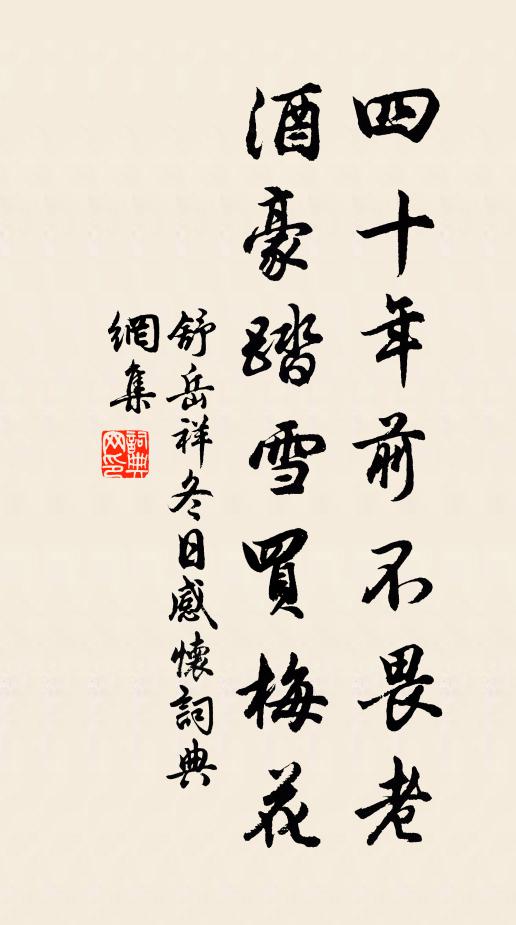 四十年前不畏老
酒豪踏雪買梅花
舒岳祥冬日感懷詞典
網集
詞典
网印